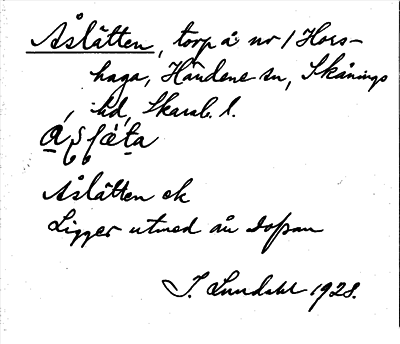 Åslätten, torp å nr 1 Hors-
haga, Händene sn, Skånings
hd, Skarab. l.
Åslätten ek
Ligger utmed ån Dofsan
I. Lundahl 1928.